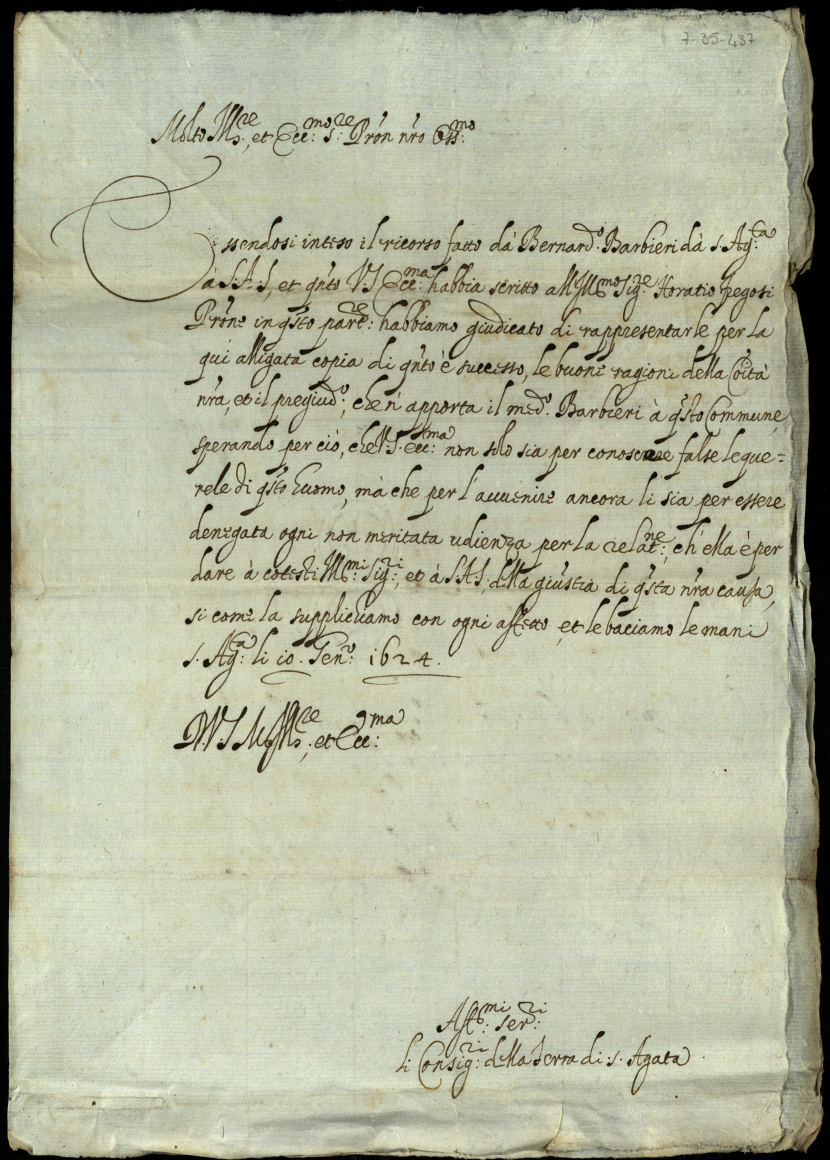 7-35-437
Molto Ill:re, et Ecc:mo s:re Pron nro Oss:mo
Essendosi inteso il ricorso fatto dà Bernard:o Barbieri dà s. Ag:ta
à S.A.S, et qnto V.S. Ecc:ma habbia scritto all'Ill:mo Sig:re Horatio
Prone in qsto par:re habbiamo giudicato di rappresentarle per la
qui alligata copia di qnto è successo, le buone ragioni della Coità
nra, et il pregiud:o, che n'apporta il med:o Barbieri à qsto Commune,
sperando per ciò, che V.S. Ecc:ma non solo sia per conoscere false le que=
rele di qsto huomo, mà che per l'avvenire ancora li sia per essere
denegata ogni non meritata udienza per la relat:ne, ch'ella è per
dare à cotesti Ill:mi Sig:ri, et à S.A.S, della giustitia di qsta nra causa,
si come la supplichiamo con ogni affetto, et le baciamo le mani
s. Ag:ta li 10. Gen:o 1624.
D V.S. M. Ill:re, et Ecc:ma
Aff:mi ser:ri
li Consig:ri della Terra di s. Agata